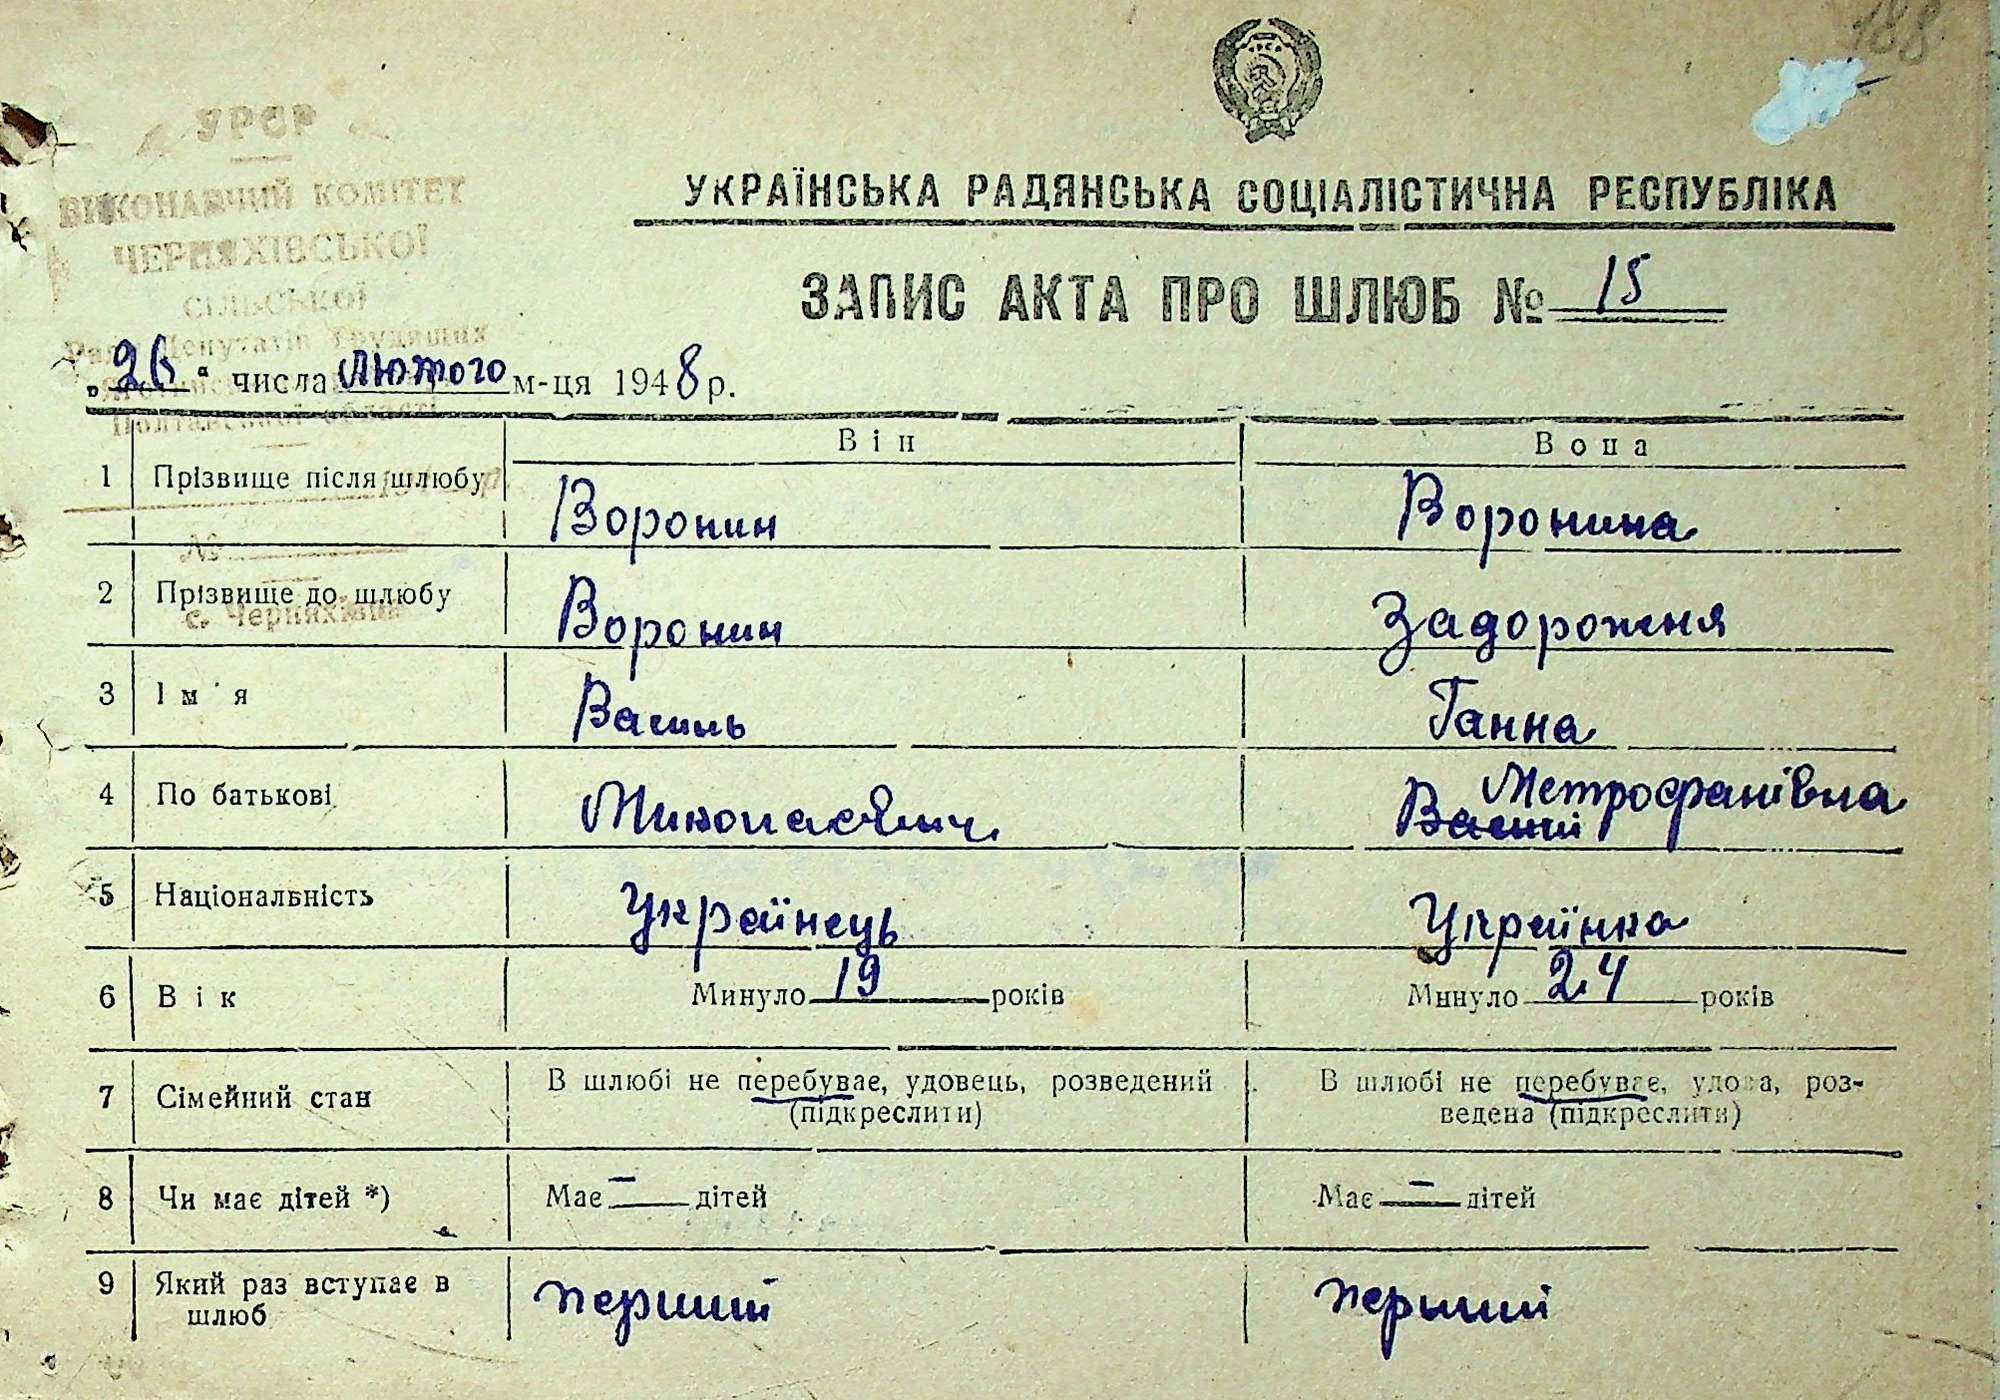 188
УРСР
ВИКОНАВЧИЙ КОМІТЕТ
ЧЕРНЯХІВСЬКОЇ
СІЛЬСЬКОЇ
Ради Депутатів Трудящих
Полтавської області
№
с. Черняхівка
УКРАЇНСЬКА РАДЯНСЬКА СОЦІАЛІСТИЧНА РЕСПУБЛІКА
ЗАПИС АКТА ПРО ШЛЮБ № 15
„26“ числа лютого м-ця 1948 р.
Він Вона
1 Прізвище після шлюбу Воронин Воронина
2 Прізвище до шлюбу Воронин Задорожня
3 Ім'я Василь Ганна
4 По батькові Миколаєвич Метрофанівна
5 Національність Українець Українка
6 Вік Минуло 19 років Минуло 24 років
7 Сімейний стан В шлюбі не перебуває, удовець, розведений (підкреслити) В шлюбі не перебуває, удова, роз-
ведена (підкреслити)
8 Чи має дітей *) Має — дітей Має — дітей
9 Який раз вступає в перший перший
шлюб